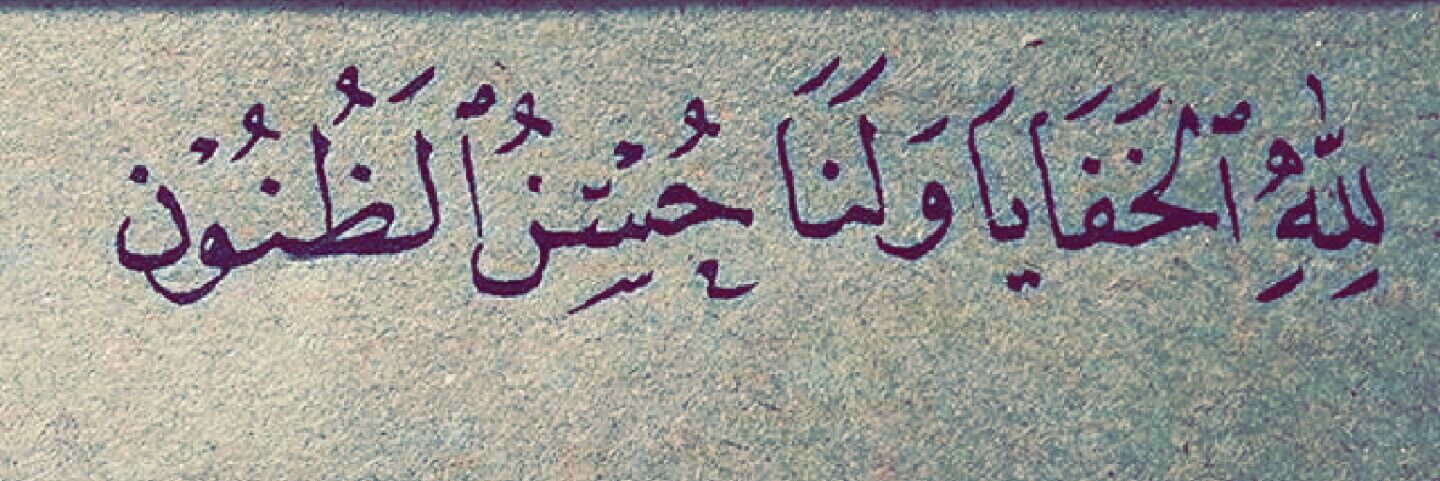 لِلّٰهِ ٱلْخَفَايَا وَلَنَا حُسْنُ ٱلظُّنُوْنِ